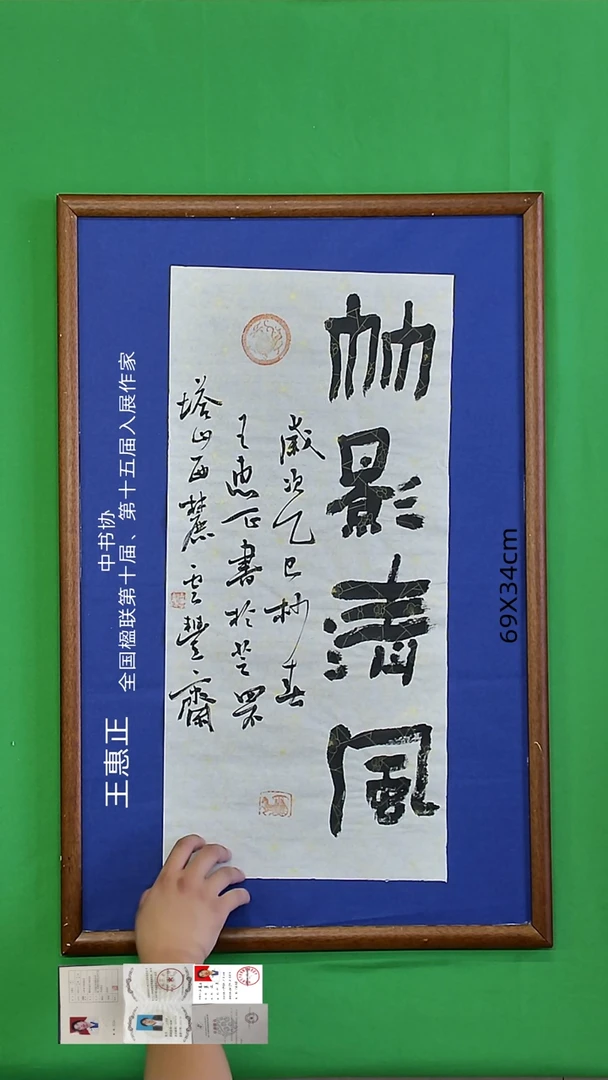 竹影清风
岁次乙巳杪春
王惠正书於芝罘
塔山西麓云丰斋
王惠正
中书协
全国楹联第十届、第十五届入展作家
69X34cm